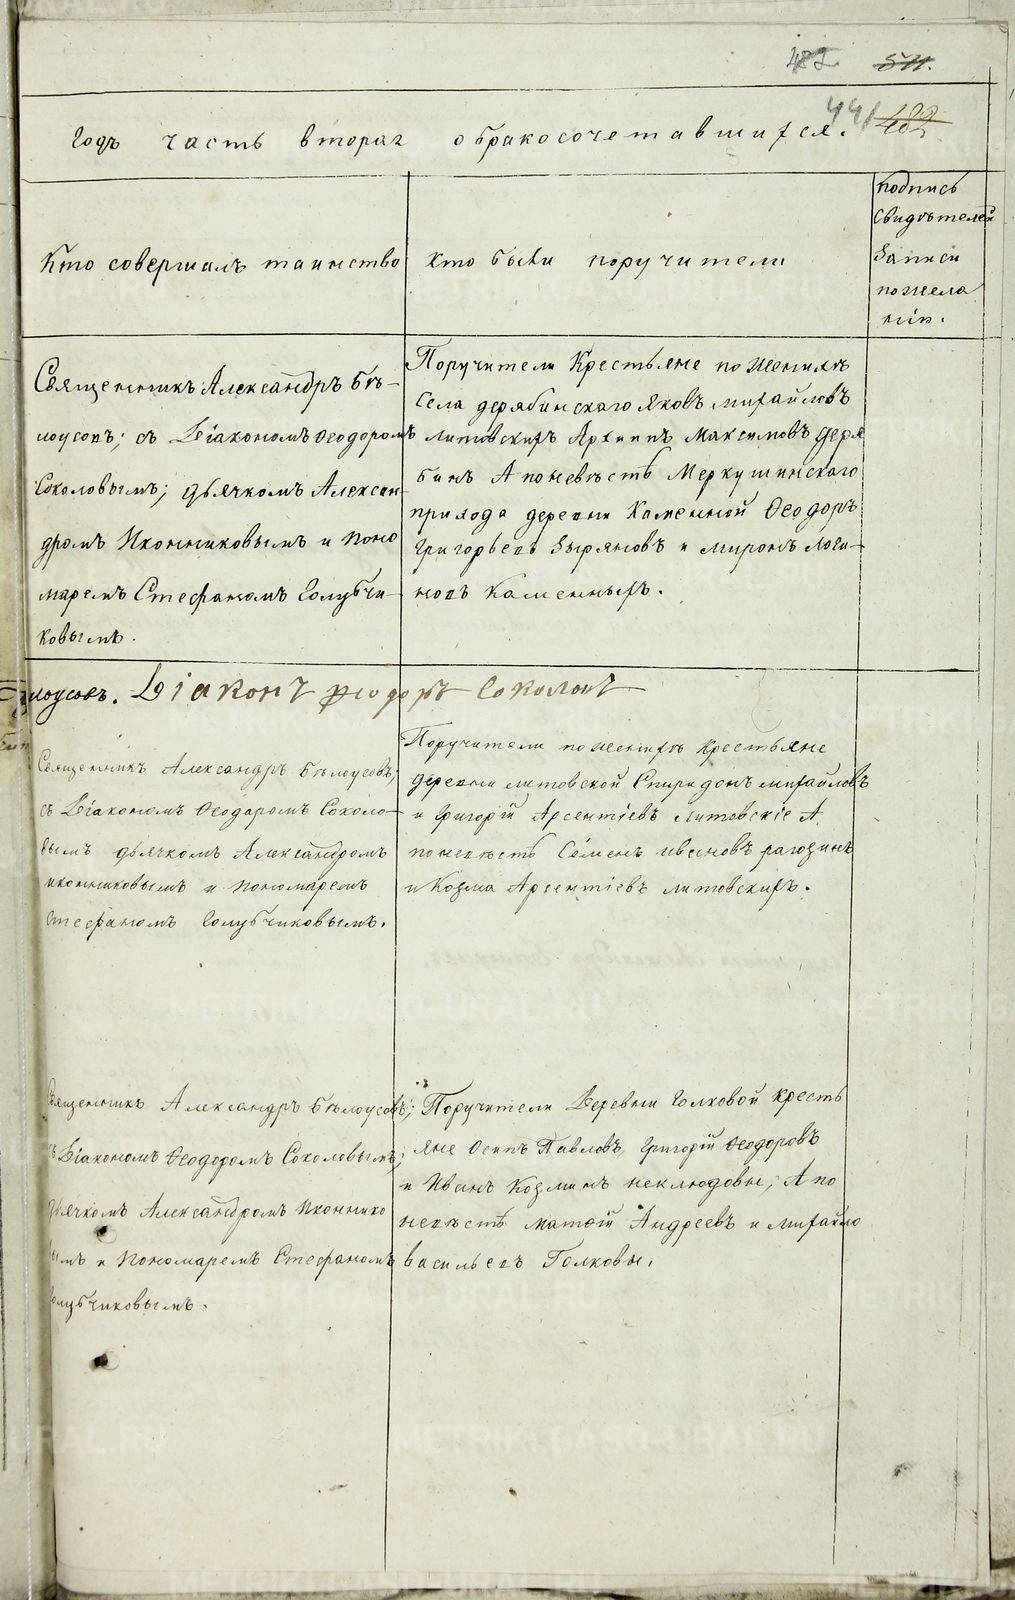 482 511.
441 482
Годъ часть вторая обракосочетавшихся.
Кто совершалъ таинство
кто были поручители
подпись
свидѣтелей
записи
пожела
нію.
Священникъ Александръ Бѣ-
лоусовъ; съ Діакономъ Ѳеодоромъ
Соколовымъ; дьячкомъ Алексан
дромъ Иконниковымъ и Поно
маремъ Стефаномъ Голубчи-
ковымъ.
Поручители Крестьяне по женихѣ
села дерябинскаго Яковъ михайловъ
литовскихъ Архипъ Максимовъ Деря
бинъ А поневѣстѣ Меркушинскаго
прихода деревни Каменной Ѳеодоръ
Григорьевъ Зыряновъ и миронъ логи-
новъ Каменныхъ.
лоусовъ. Діаконъ Ѳеодоръ Соколовъ
Священникъ Александръ Бѣлоусовъ;
съ Діакономъ Ѳеодоромъ Соколо-
вымъ дьячкомъ Александромъ
иконниковымъ и Пономаремъ
Стефаномъ Голубчиковымъ.
Поручители поженихѣ крестьяне
деревни литовской Спиридонъ михайловъ
и Григорій Арсентіевъ литовскіе А
поневѣстѣ Семенъ ивановъ рагозинъ
и Козма Арсентіевъ литовскихъ.
Священникъ Александръ Бѣлоусовъ;
съ Діакономъ Ѳеодоромъ Соколовымъ;
дьячкомъ Александромъ Иконнико
вымъ и Пономаремъ Стефаномъ
Голубчиковымъ.
Поручители Деревни Голковой кресть
яне Осипъ Павловъ, Григорій Ѳеодоровъ
и Иванъ Козминъ неклюдовы; А по
невѣстѣ матѳій Андреевъ и михайло
васильевъ Голковы.
METRIKI.GASO-URAL.RU